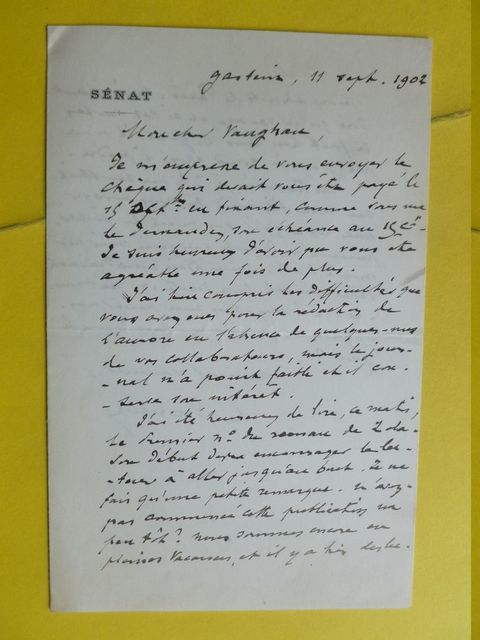 Gastein, 11 sept. 1902
SÉNAT
Mon cher Vaughan,
Je m'empresse de vous envoyer le
chèque qui devait vous être payé le
15 en fixant, comme vous me
le demandez, son échéance au 15 ct.
Je suis heureux d'avoir pu vous être
agréable une fois de plus.
J'ai bien compris les difficultés que
vous avez eues pour la rédaction de
l'aurore en l'absence de quelques-uns
de vos collaborateurs, mais le jour-
-nal n'a point faibli et il con-
-serve son intérêt.
J'ai été heureux de lire, ce matin,
le premier n° du roman de Zola.
Son début devra encourager le lec-
-teur à aller jusqu'au bout. Je ne
fais qu'une petite remarque. N'avez
pas commencé cette publication un
peu tôt? Nous sommes encore en
pleines vacances, et il y a bien des lec-